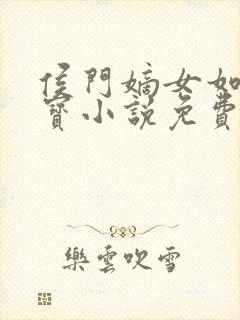 侯門嫡女如
寳小説免費
樂雲吹雪